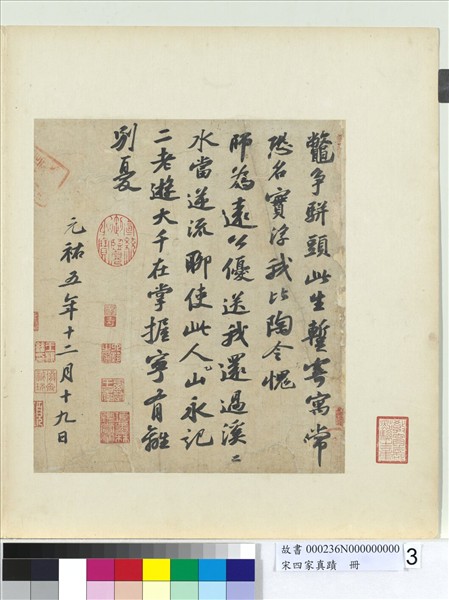 鼇爭駢頭此生暫寄寓常
恐名實浮我比陶令愧
師為遠公優送我還過溪〻
水當逆流聊使此人山永記
二老遊大千在掌握寧有離
別憂
元祐五年十二月十九日
故書 000236N000000000
宋四家真蹟 冊
3